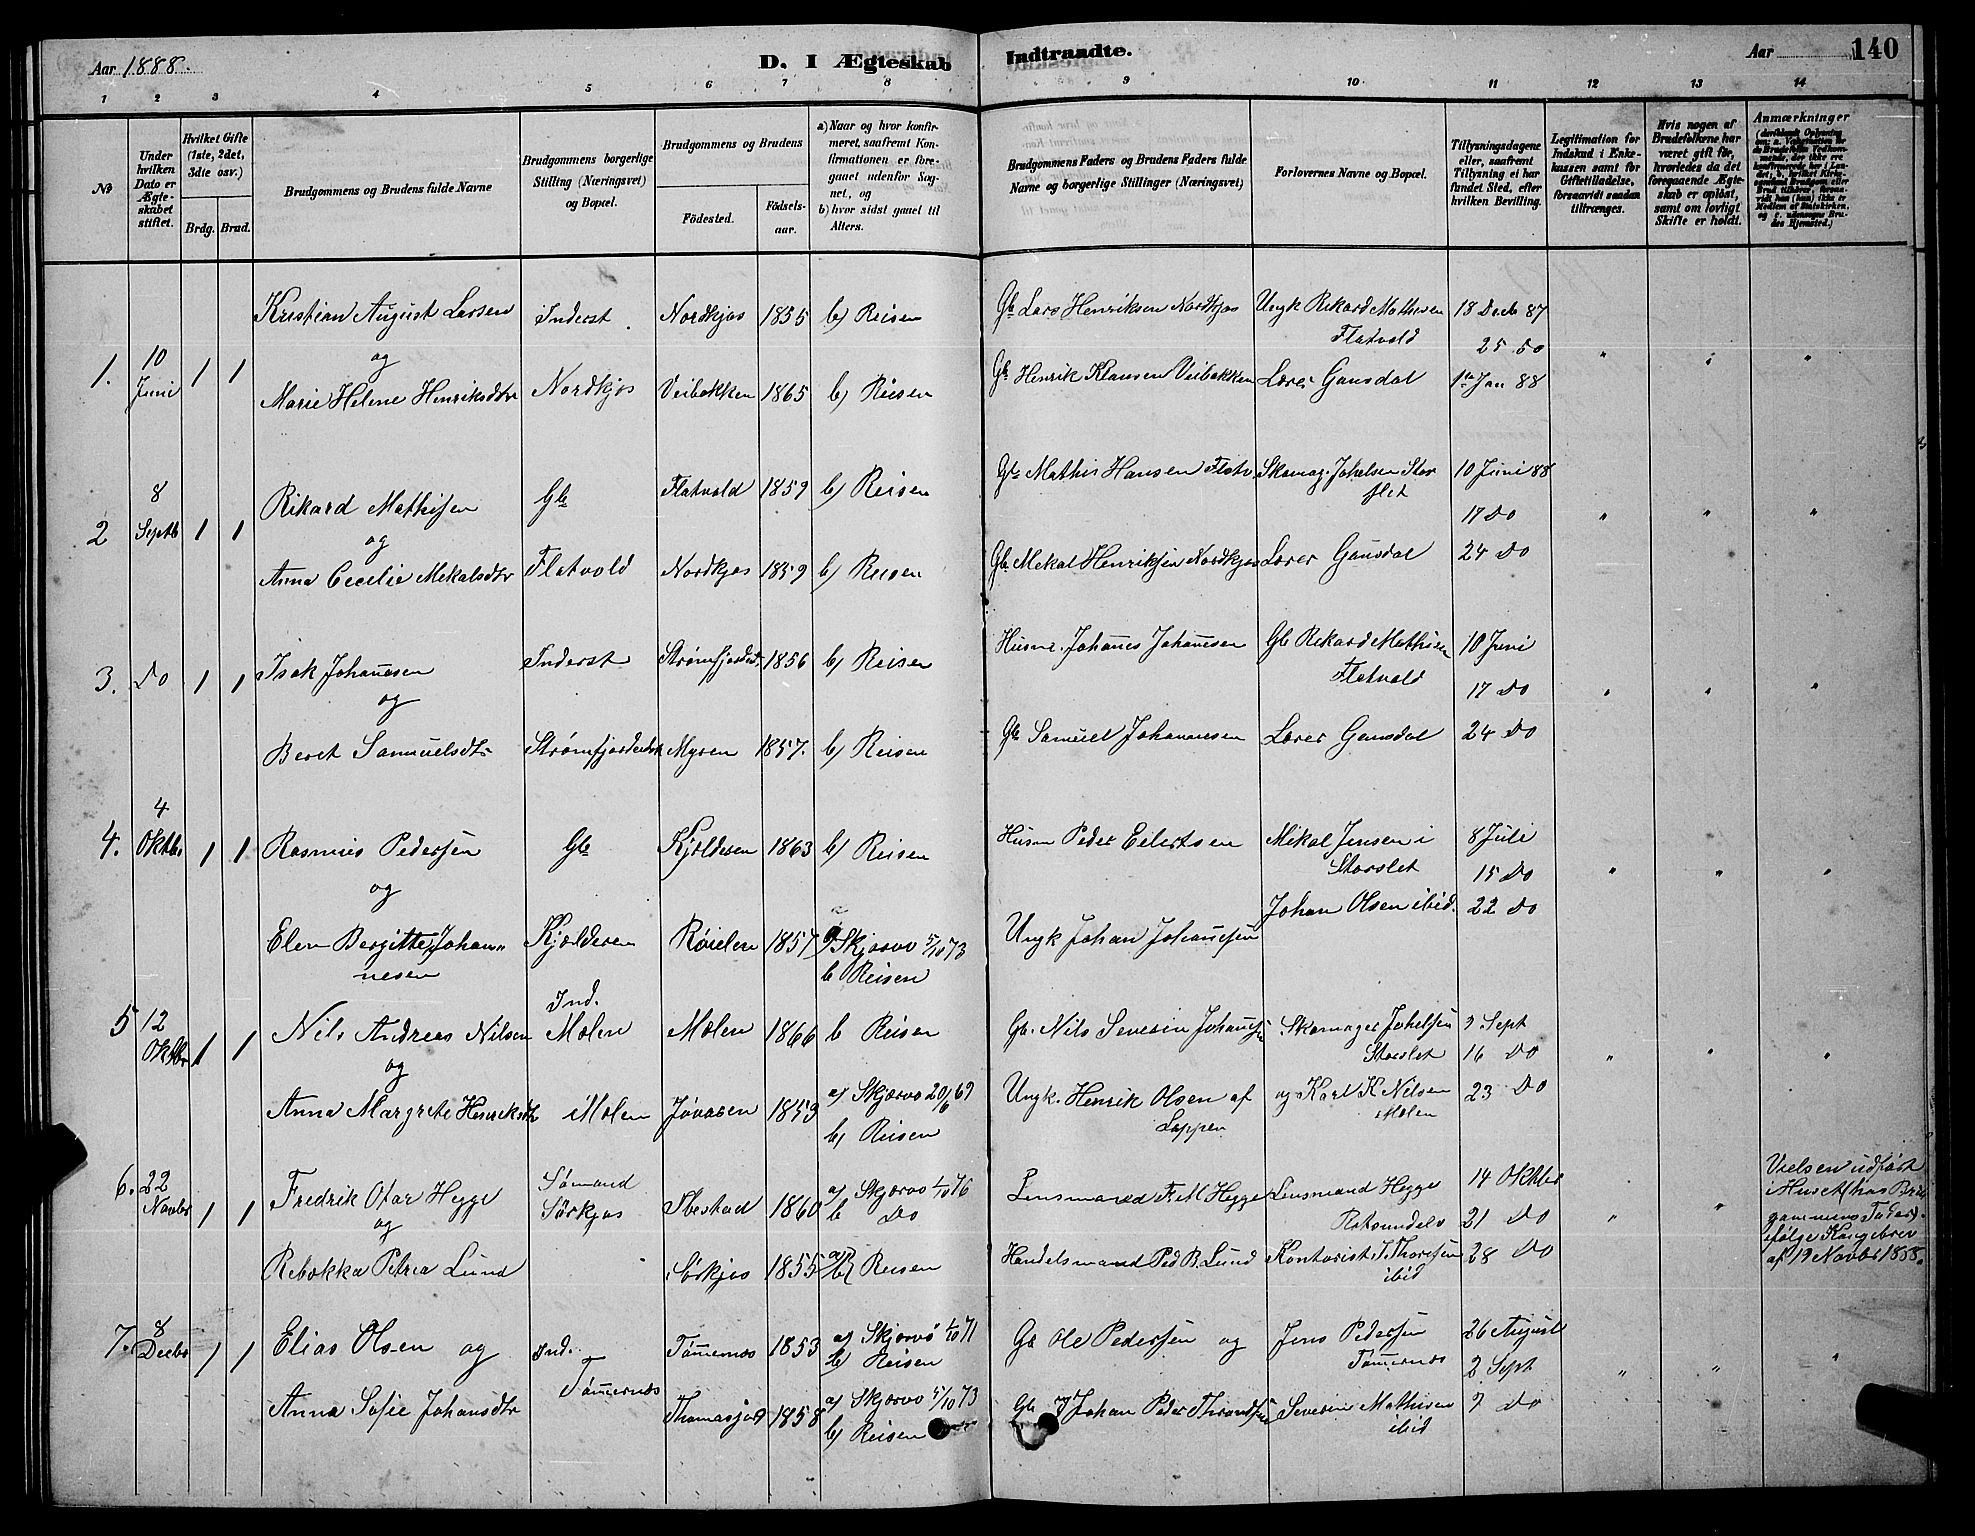 Aar 1888.
D. I Ægteskab Indtraadte.
Aar 140
1 2 3 4 5 6 7 8 9 10 11 12 13 14
No
Under hvilken Dato er Ægteskabet stiftet.
Hvilket Gifte (1ste, 2det, 3die osv.)
Brdg. Brud.
Brudgommens og Brudens fulde Navne
Brudgommens borgerlige Stilling (Næringsvei) og Bopæl.
Brudgommens og Brudens
Fødested. Fødselsaar.
a) Naar og hvor konfirmeret, saafremt Konfirmationen er foregaaet udenfor Sognet, og
b) hvor sidst gaaet til Alters.
Brudgommens Faders og Brudens Faders fulde Navne og borgerlige Stillinger (Næringsvei)
Forlovernes Navne og Bopæl.
Tillysningsdagene eller, saafremt Tillysning ei har fundet Sted, efter hvilken Bevilling.
Legitimation for Indskud i Enkekassen samt for Giftetilladelse, forsaavidt saadan tiltrænges.
Hvis nogen af Brudefolkene har været gift før, hvorledes da det foregaaende Ægteskab er opløst, samt om lovligt Skifte er holdt.
Anmærkninger
1. 10 Juni 1 1
Kristian August Larsen Inderst Nordkjos 1855 b) Reisen Gb Lars Henriksen Nordkjos Ungk Rikard Mathisen Flatvold 18 Decb 87
og 25 Do " " "
Marie Helene Henriksdtr Nordkjos Veibakken 1865 b) Reisen Gb Henrik Klausen Veibakken Lærer Gausdal 1ste Jan 88
2 8 Septb 1 1
Rikard Mathisen Gb Flatvold 1859 b) Reisen Gb Mathis Hansen Flatv Skomag. Johelsen Storslet 10 Juni 88
og 17 Do " " "
Anna Cecelie Mekalsdtr Flatvold Nordkjos 1859 b) Reisen Gb Mekal Henriksen Nordkjos Lærer Gausdal 24 Do
3. Do 1 1
Isak Johanesen Inderst Strømfjordeid 1856 b) Reisen Husm. Johanes Johanesen Gb Rikard Mathisen Flatvold 10 Juni
og 17 Do " " "
Beret Samuelsdtr Strømfjordeidet Myren 1857. b) Reisen Gb Samuel Johannesen Lærer Gausdal 24 Do
4. 4 Oktbr 1 1
Rasmus Pedersen Gb Kjølderen 1863 b) Reisen Husm Peder Eilertsen Mikal Jensen i Storslet 8 Juli
og 15 Do " " "
Elen Bergitte Johannesen Kjølderen Røielen 1857 a) Skjærvø 5/10 73 b Reisen Ungk Johan Johanesen Johan Olsen ibid. 22 Do
5 12 Oktbr 1 1
Nils Andreas Nilsen Ind. Molen Molen 1866 b Reisen Gb. Nils Severin Johansen Skomager Johelsen Storslet 9 Sept
og 16 Do " " "
Anna Margrete Henriksdtr Molen Jøvaasen 1853 a) Skjærvø 20/6 69 b) Reisen Ungk. Henrik Olsen af Loppen og Karl K Nilsen Molen 23 Do
6. 22 Novbr 1 1
Fredrik Otar Hegge Sømand Sørkjos Ibestad 1860 a) Skjærvø 1/10 76 b Do Lensmand Fr. M Hegge Lensmand Hegge Rotsundelv 14 Oktbr
og 21 Do " "
Rebekka Petrea Lund Sørkjos 1855 b) Reisen Handelsmand Ped B. Lund Kontorist J. Thoresen ibid 28 Do
Vielsen udført i Huset (hos Brudgommens Fader) ifølge Kongebrev af 19 Novbr 1888.
7. 8 Decbr 1 1
Elias Olsen og Ind. Tømernes 1853 a) Skjærvø 1/10 71 b) Reisen Gb Ole Pedersen og Jens Pedersen Tømernes 26 August
2 Sept " " "
Anna Sofie Johansdtr Tømernes Thomasjord 1858 a) Skjærvø 5/10 73 b) Reisen Gb Johan Peder Thrandsen Severin Mathisen ibid 9 Do